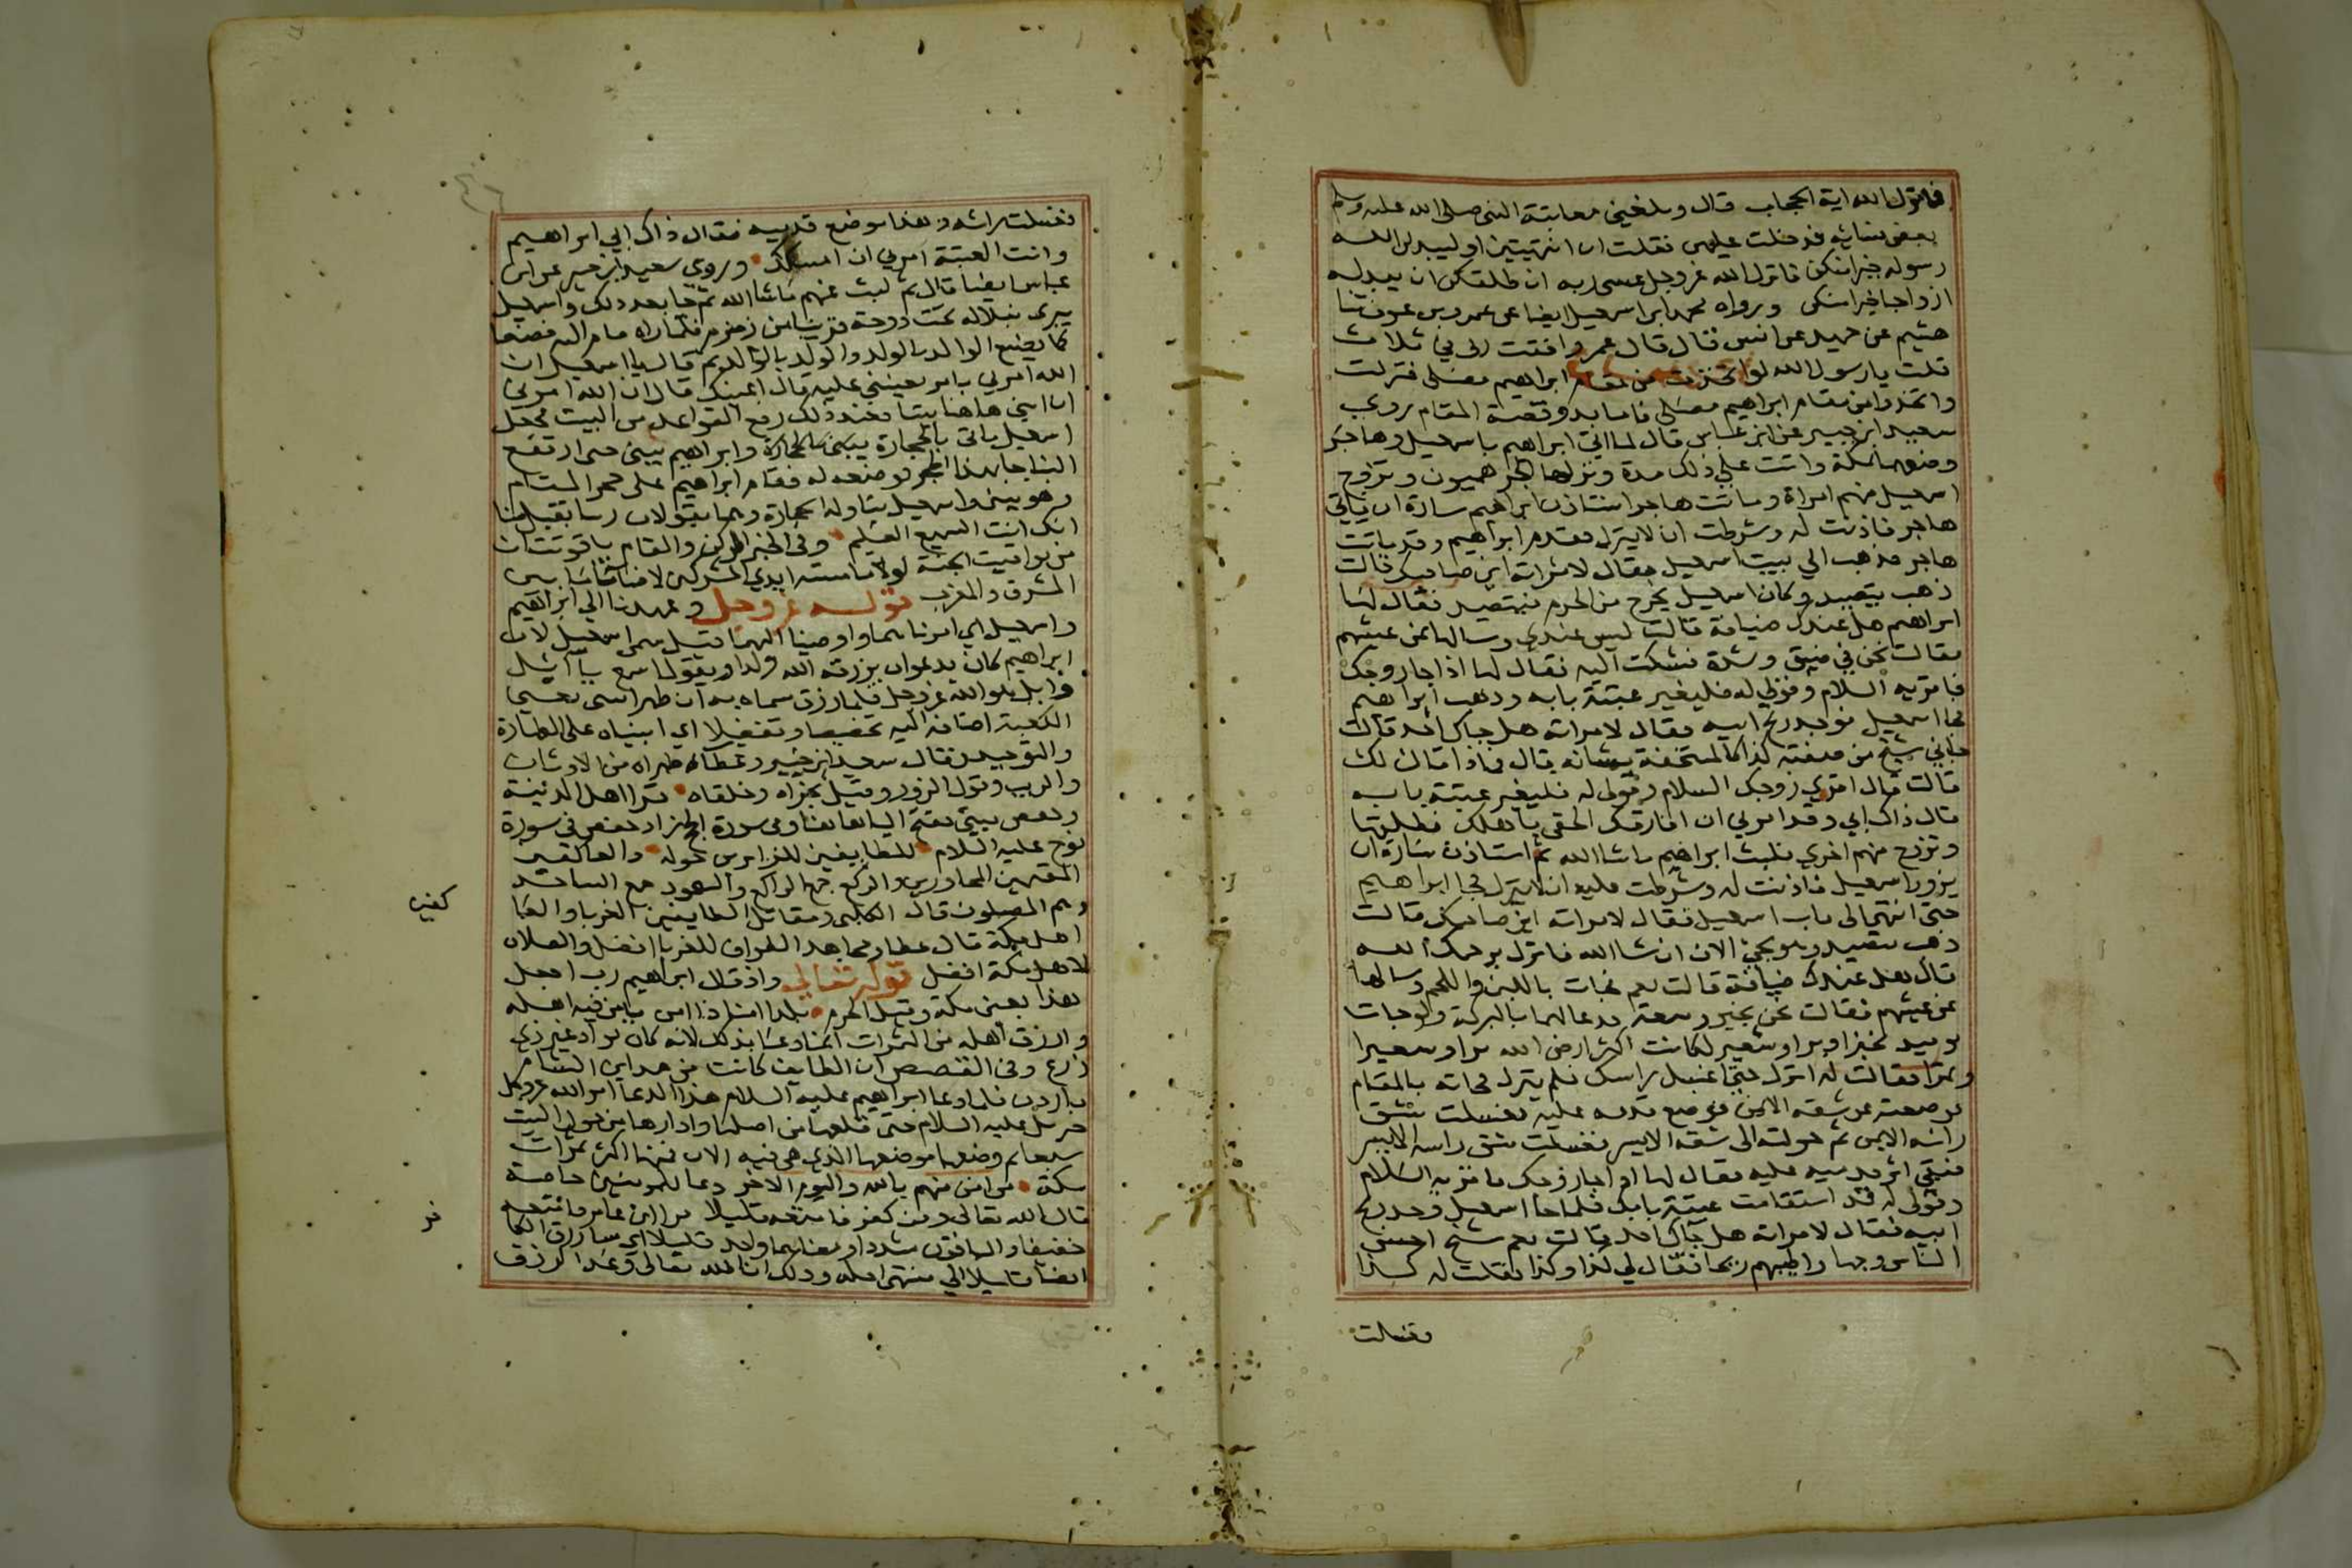 فانزل الله اية الحجاب قال وبلغني معاتبة النبي صلى الله عليه وسلم
بعض نسايه فدخلت عليهن فقلت ان انتهيتين او ليبدلن الله
رسوله خيرا منكن فانزل الله عز وجل عسى ربه ان طلقكن ان يبدله
ازواجا خيرا منكن ورواه محمد ابن اسمعيل ايضا عن عمرو بن عون ثنا
هشيم عن حميد عن انس قال قال عمر وافقت ربي في ثلاث
قلت يا رسول الله لو اتخذت من مقام ابراهيم مصلى فنزلت
واتخذوا من مقام ابراهيم مصلى فاما بدو قصة المقام روي
سعيد ابن جبير عن ابن عباس قال لما اتى ابراهيم باسمعيل وهاجر
وضعهما بمكة واتت على ذلك مدة ونزلها الجرهميون وتزوج
اسمعيل منهم امراة وماتت هاجر استاذن ابراهيم سارة ان ياتي
هاجر فاذنت له وشرطت ان لا ينزل فقدم ابراهيم وقد ماتت
هاجر فذهب الي بيت اسمعيل فقال لامراته اين صاحبك قالت
ذهب يتصيد وكان اسمعيل يخرج من الحرم فيتصيد فقال لها
ابراهيم هل عندك ضيافة قالت ليس عندي وسالها عن عيشهم
فقالت نحن في ضيق وشدة فشكت اليه فقال لها اذا جا زوجك
فاقريه السلام وقولي له فليغير عتبة بابه وذهب ابراهيم
فجا اسمعيل فوجد ريح ابيه فقال لامراته هل جاك احد قالت
جاني شيخ من صفته كذا كالمستخفة بشانه قال فماذا قال لك
قالت قال اقري زوجك السلام وقولي له فليغير عتبة بابه
قال ذاك ابي وقد امرني ان افارقك الحقي باهلك فطلقها
وتزوج منهم اخري فلبث ابراهيم ما شا الله ثم استاذن سارة ان
يزور اسمعيل فاذنت له وشرطت عليه ان لا ينزل فجا ابراهيم
حتى انتهى الى باب اسمعيل فقال لامراته اين صاحبك قالت
ذهب يتصيد وهو يجي الان ان شا الله فانزل يرحمك الله
قال هل عندك ضيافة قالت نعم فجات باللبن واللحم وسالها
عن عيشهم فقالت نحن بخير وسعة فدعا لهما بالبركة ولو جات
يوميد بخبز او بر او شعير لكانت اكثر ارض الله برا وشعيرا
وتمرا فقالت له انزل حتى اغسل راسك فلم ينزل فجاته بالمقام
فوضعته عن شقه الايمن فوضع قدمه عليه فغسلت شق
راسه الايمن ثم حولته الى شقه الايسر فغسلت شق راسه الايسر
فبقي اثر قدميه عليه فقال لها اذا جا زوجك فاقريه السلام
وقولي له قد استقامت عتبة بابك فلما جا اسمعيل وجد ريح
ابيه فقال لامراته هل جاك احد قالت نعم شيخ احسن
الناس وجها واطيبهم ريحا فقال لي كذا وكذا فقلت له كذا
فغسلت
فغسلت راسه وهذا موضع قدميه فقال ذاك ابي ابراهيم
وانت العتبة امرني ان امسكك وروي سعيد ابن جبير عن ابن
عباس ايضا قال ثم لبث عنهم ما شا الله ثم جا بعد ذلك واسمعيل
يبري نبلا له تحت دوحة قريبا من زمزم فلما راه قام اليه فصنعا
كما يصنع الوالد بالولد والولد بالوالد ثم قال يا اسمعيل ان
الله امرني بامر تعينني عليه قال اعينك قال ان الله امرني
ان ابني هاهنا بيتا فعند ذلك رفع القواعد من البيت فجعل
اسمعيل ياتي بالحجارة وابراهيم يبني حتى ارتفع
البنا جا بهذا الحجر فوضعه له فقام ابراهيم على حجر المقام
وهو يبني واسمعيل يناوله الحجارة وهما يقولان ربنا تقبل منا
انك انت السميع العليم وفي الخبر الركن والمقام ياقوتتان
من يواقيت الجنة لولا ما مسته ايدي المشركين لاضا ما بين
المشرق والمغرب قوله عز وجل وعهدنا الي ابراهيم
واسمعيل اي امرناهما واوصينا اليهما قيل سمى اسمعيل لان
ابراهيم كان يدعو ان يرزقه الله ولدا ويقول اسمع يا ائيل
وايل هو الله عز وجل فلما رزق سماه به ان طهرا بيتي يعني
الكعبة اضافه اليه تخصيصا وتفضيلا اي ابنياه على الطهارة
والتوحيد وقال سعيد ابن جبير وعطاء طهراه من الاوثان
والريب وقول الزور وقيل بخراه وخلقاه قرا اهل المدينة
وحفص بيتي بفتح اليا هاهنا وفي سورة الحج زاد حفص في سورة
نوح عليه السلام للطايفين للزايرين حوله والعاكفين
المقيمين المجاورين والركع جمع الراكع والسجود جمع الساجد
وهم المصلون قال الكلبي ومقاتل الطايفين الغربا والعا
كفين
اهل مكة قال عطا ومجاهد الطواف للغربا افضل والصلاة
لاهل مكة افضل قوله تعالى واذ قال ابراهيم رب اجعل
هذا يعني مكة وقيل الحرم بلدا امنا ذا امن يامن فيه اهله
وارزق اهله من الثمرات انما دعا بذلك لانه كان بواد غير ذي
زرع وفي القصص ان الطايف كانت من مداين الشام
باردن فلما دعا ابراهيم عليه السلام هذا الدعا امر الله عز وجل
جبريل عليه السلام حتى قلعها من اصلها وادارها من حول البيت
سبعا ثم وضعها موضعها الذي هي فيه الان فمنها اكثر ثمرات
مكة من امن منهم بالله واليوم الاخر دعا للمومنين خاصة
قال الله تعالى ومن كفر فامتعه قليلا قرا ابن عامر فامتعه
خفيفا والباقون مشددا ومعناهما واحد قليلا اي سارزق الكا
فر
ايضا قليلا الي منتهى اجله وذلك ان الله تعالى وعد الرزق